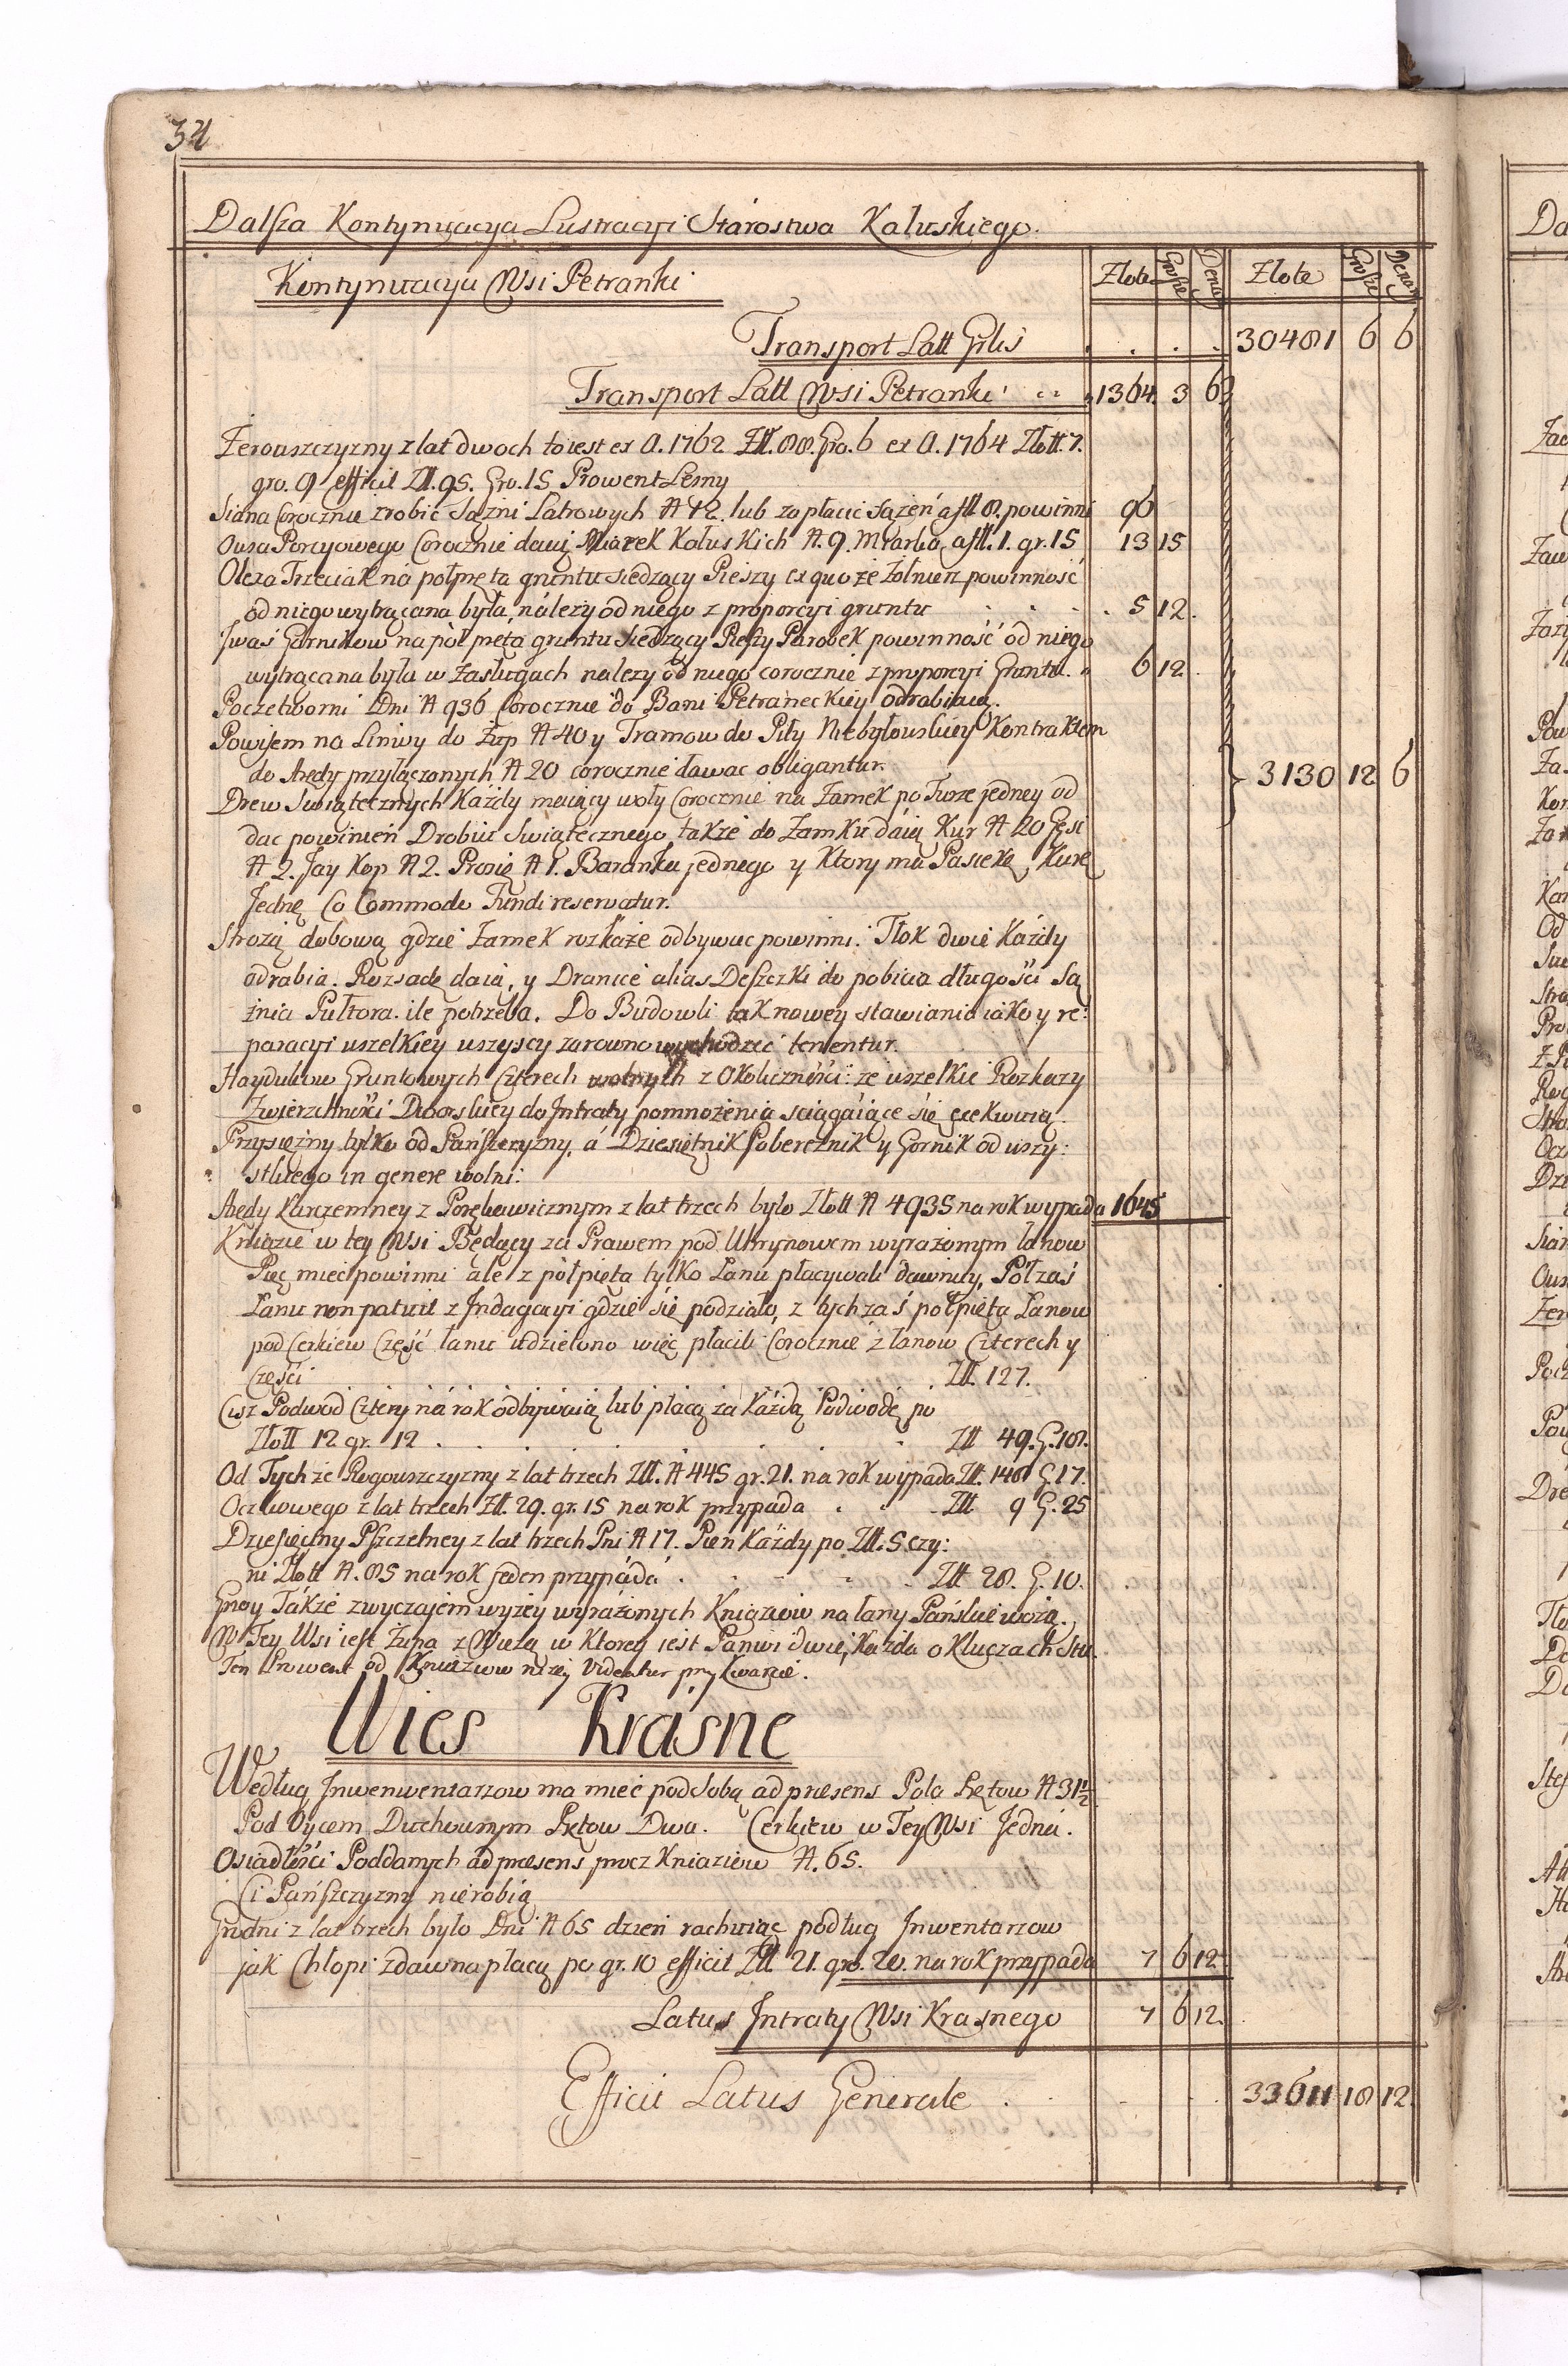 32
Dalsza Kontynuacya Lustracyi Starostwa Kaluskiego.
Kontynuacya Wsi Petranki Złote Grosze Denar Złote Grosze Denar
Transport Latt Grlis . . . 30481 6 6
Transport Latt Wsi Petranki 1364. 3 6
Żerouszczyzny z lat dwoch to iest ex A. 1762 Złł. 88. Gro. 6 ex A. 1764 Złott. 7.
gro. 9 efficit Złł. 95. Gro. 15 Prowent Lesny
Siana Corocznie zrobić Sązni Latrowych N 12. lub zapłacic sązeń a fll 8. powinni 96
Owsa Porcyowego Corocznie daią Miarek Kałuskich N. 9. Miarka a fll. 1. gr. 15 13 15
Olexa Trzeciak na połpręta gruntu siedzący Pieszy ex quo że żołnierz powinność
od niego wytrącana była, należy od niego z proporcyi gruntu . . . 5 12.
Iwaś Garnikow na poł pręta gruntu Siedzący Pieszy Parobek powinność od niego
wytrącana była w Zasługach nalezy od niego corocznie z proporcyi Gruntu. 6 12
Poczetworni Dni N 936 Corocznie do Bani Petraneckiey odrabiaią.
Powisem na Linwy do Żup N 40 y Tramow do Piły Niebyłouskiey Kontraktem
do Aredy przyłączonych N 20 corocznie dawac obligantur. 3130 12 6
Drew Swiątecznych Każdy maiący woły Corocznie na Zamek po Furze jedney od
dac powinień Drobiu Swiątecznego także do Zamku daią Kur N 20 Gęsi
N 2. Jay Kop N 2. Prosię N 1. Baranka jednego y Ktory ma Pasiekę Kurę
Jednę Co Commodo Fundi reservatur.
Strożą dobową gdzie Zamek rozkaże odbywac powinni. Tłok dwie Każdy
odrabia. Rozsadę daią, y Dranice alias Deszczki do pobicia długości Są
żnia Pułtora. ile potrzeba. Do Budowli tak nowey stawiania iako y re:
paracyi wszelkiey wszyscy zarowno wychodzic tenentur.
Haydukow Gruntowych Czterech wolnych z Okoliczności: ze wszelkie Rozkazy
Zwierzchności Dworskiey do Intraty pomnożenia sciągaiące się exekwuią.
Przysiężny tylko od Pańszczyzny, á Dziesiętnik Pobereznik y Gornik od wszy:
stkiego in genere wolni:
Aredy Karczemney z Porękawicznym z lat trzech było Złott N 4935 na rok wypada 1645
Kniazie w tey Wsi Będący za Prawem pod Uhrynowem wyrażonym Łanow
Pięc mieć powinni ale z połpięta tylko Łanu płacywali dawniey, Poł zaś
Łanu non patuit z Indagacyi gdzie się podziało, z tych zaś połpięta Łanow
pod Cerkiew Część łanu udzielono więc płacili Corocznie z łanow Czterech y
Części . . . Złł. 127.
Ciż Podwod Cztery na rok odbywaią lub płacą za Każdą Podwodę po
Złott 12 gr. 12 . . . Złł 49. G. 18.
Od Tychże Rogouszczyzny z lat trzech Złł. N 445 gr. 21. na rok wypada Złł. 148 G 17.
Oczkowego z lat trzech Złł. 29. gr. 15 na rok przypada . . . Złł 9 G. 25
Dziesięciny Pszczelney z lat trzech Pni N 17. Pień Każdy po Złł. 5 czy:
ni Złott N. 85 na rok jeden przypáda . . . Złł 28. G. 10.
Gnoy Tákże zwyczajem wyżey wyrażonych Kniaziow na łany Pańskie wożą.
W Tey Wsi iest Żupa z Wieżą w Ktorey iest Panwi dwie, Kazda o Kluczach Stu.
Ten Prowent od Kniaziow niżej videatur przy Kwarcie.
Wies Krásne
Według Inwenwentarzow ma mieć pod Sobą ad presens Pola Prętow N 31 1/2
Pod Oycem Duchownym Prętow Dwa. Cerkiew w Tey Wsi Jedna.
Osiadłości Poddanych ad presens procz Kniaziow N. 65.
Ci Pańszczyzny nie robią
Grodni z lat trzech było Dni N 65 dzien rachuiąc podług Inwentarzow
jak Chłopi zdawna płacą po gr. 10 efficit Złł. 21. gro. 20. na rok przypada 7 6 12
Latus Intraty Wsi Krasnego 7 6 12.
Efficit Latus Generale . . . 33611 18 12.